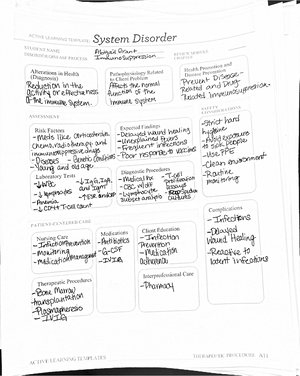 ACTIVE LEARNING TEMPLATE: System Disorder
STUDENT NAME
DISORDER/DISEASE PROCESS Immunosuppression
REVIEW MODULE CHAPTER
Alterations in Health (Diagnosis)
Reduction in the
Activity or effectiveness
of the immune system.
Pathophysiology Related to Client Problem
Affects the normal
function of the
immune system
Health Promotion and Disease Prevention
Prevent Disease-
Related and Drug-
ASSESSMENT
SAFETY CONSIDERATIONS
Risk Factors
- Meds like corticosteroids
chemotherapy and
immunosuppressive drugs
- Diseases
- Genetic conditions
- Young and old age
Expected Findings
- Delayed wound healing
- Unexplained fevers
- Frequent infections
- Poor response to vaccines
- Strict hand
hygiene
- Avoid exposure
to sick people
- Use PPE
- Clean environment
- Routine
monitoring
Laboratory Tests
- ↓WBC
- ↓lymphocytes
- Anemia
- ↓CD4+ T cell count
- ↓IgG, IgA,
and IgM
Diagnostic Procedures
- Medical hx
- CBC w/diff
- Lymphocyte
subset analysis
- T-cell
proliferation
assays
cultures
PATIENT-CENTERED CARE
Nursing Care
- Infection Prevention
- Monitoring
- Medication Management
Medications
- Antibiotics
- G-CSF
- IVIG
Client Education
- Infection
Prevention
- Medication
adherence
Complications
- Infections
- Delayed
Wound Healing
- Reactive to
latent infections
Therapeutic Procedures
- Bone Marrow
transplantation
- Plasmapheresis
- IVIG
Interprofessional Care
- Pharmacy
ACTIVE LEARNING TEMPLATES
THERAPEUTIC PROCEDURE A11